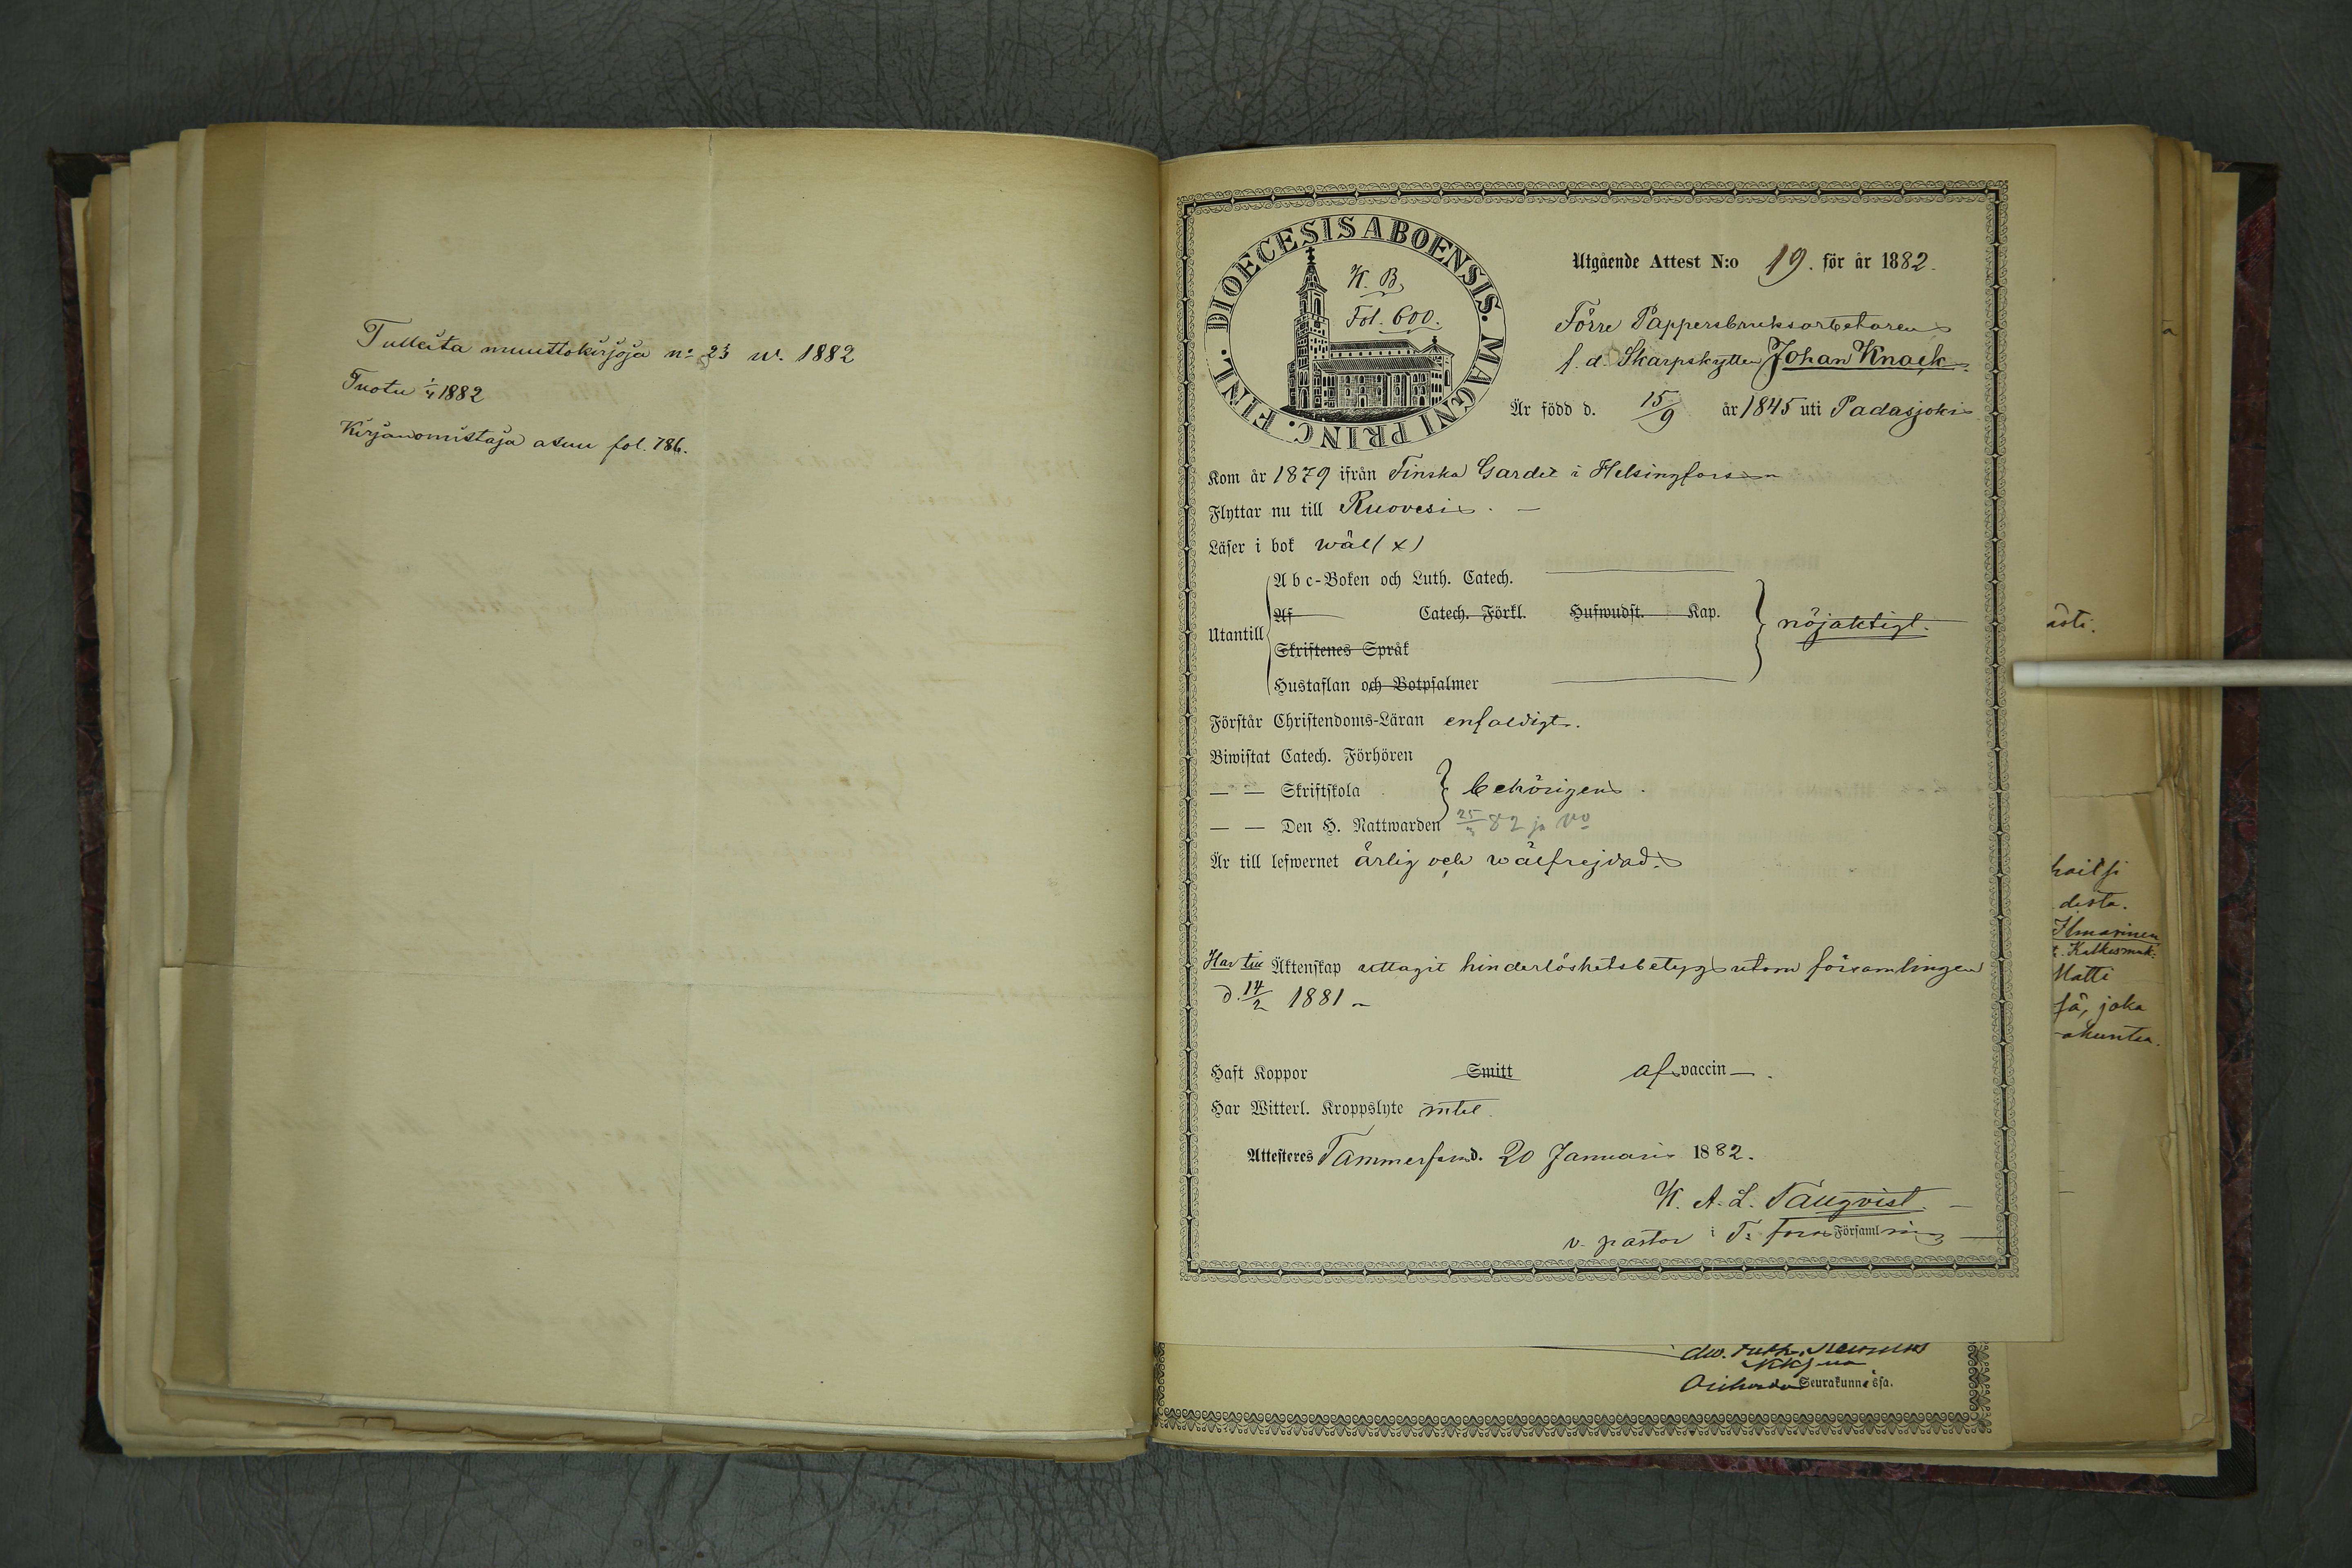 Tulleita muuttokirjoja no 23 w. 1882
Tuotu 1/4 1882
Kirjanomistaja asuu fol. 786.
DIOECESIS ABOENSIS. MAGNI PRINC. FINL.
K. B.
Fol. 600.
Utgående Attest N:o 19. för år 1882.
Förre Pappersbruksarbetaren
f. d. Skarpskytten Johan Knack
Är född d. 15/9 år 1845 uti Padasjoki
Kom år 1879 ifrån Finska Gardet i Helsingfors
Flyttar nu till Ruovesi. —
Läser i bok wäl (x)
Utantill
A b c-Boken och Luth. Catech.
Af Catech. Förkl. Hufwudst. Kap.
Skriftenes Språk
Hustaflan och Botpsalmer
nöjaktigt.
Förstår Christendoms-Läran enfaldigt.
Biwistat Catech. Förhören
— — Skriftskola
behörigen.
— — Den H. Nattwarden 82 ja
Är till lefwernet ärlig och wälfrejdad.
Har till Äktenskap uttagit hinderlöshetsbetyg utom församlingen
d. 14/2 1881 —
Haft Koppor Smitt af vaccin —.
Har Witterl. Kroppslyte intet.
Attesteres Tammerfors d. 20 Januari 1882.
K. A. L. —
v. pastor i T: fors Församling —
Seurakunnassa.
ästi.
desta.
Ilmarinen
Matti
sä, joka